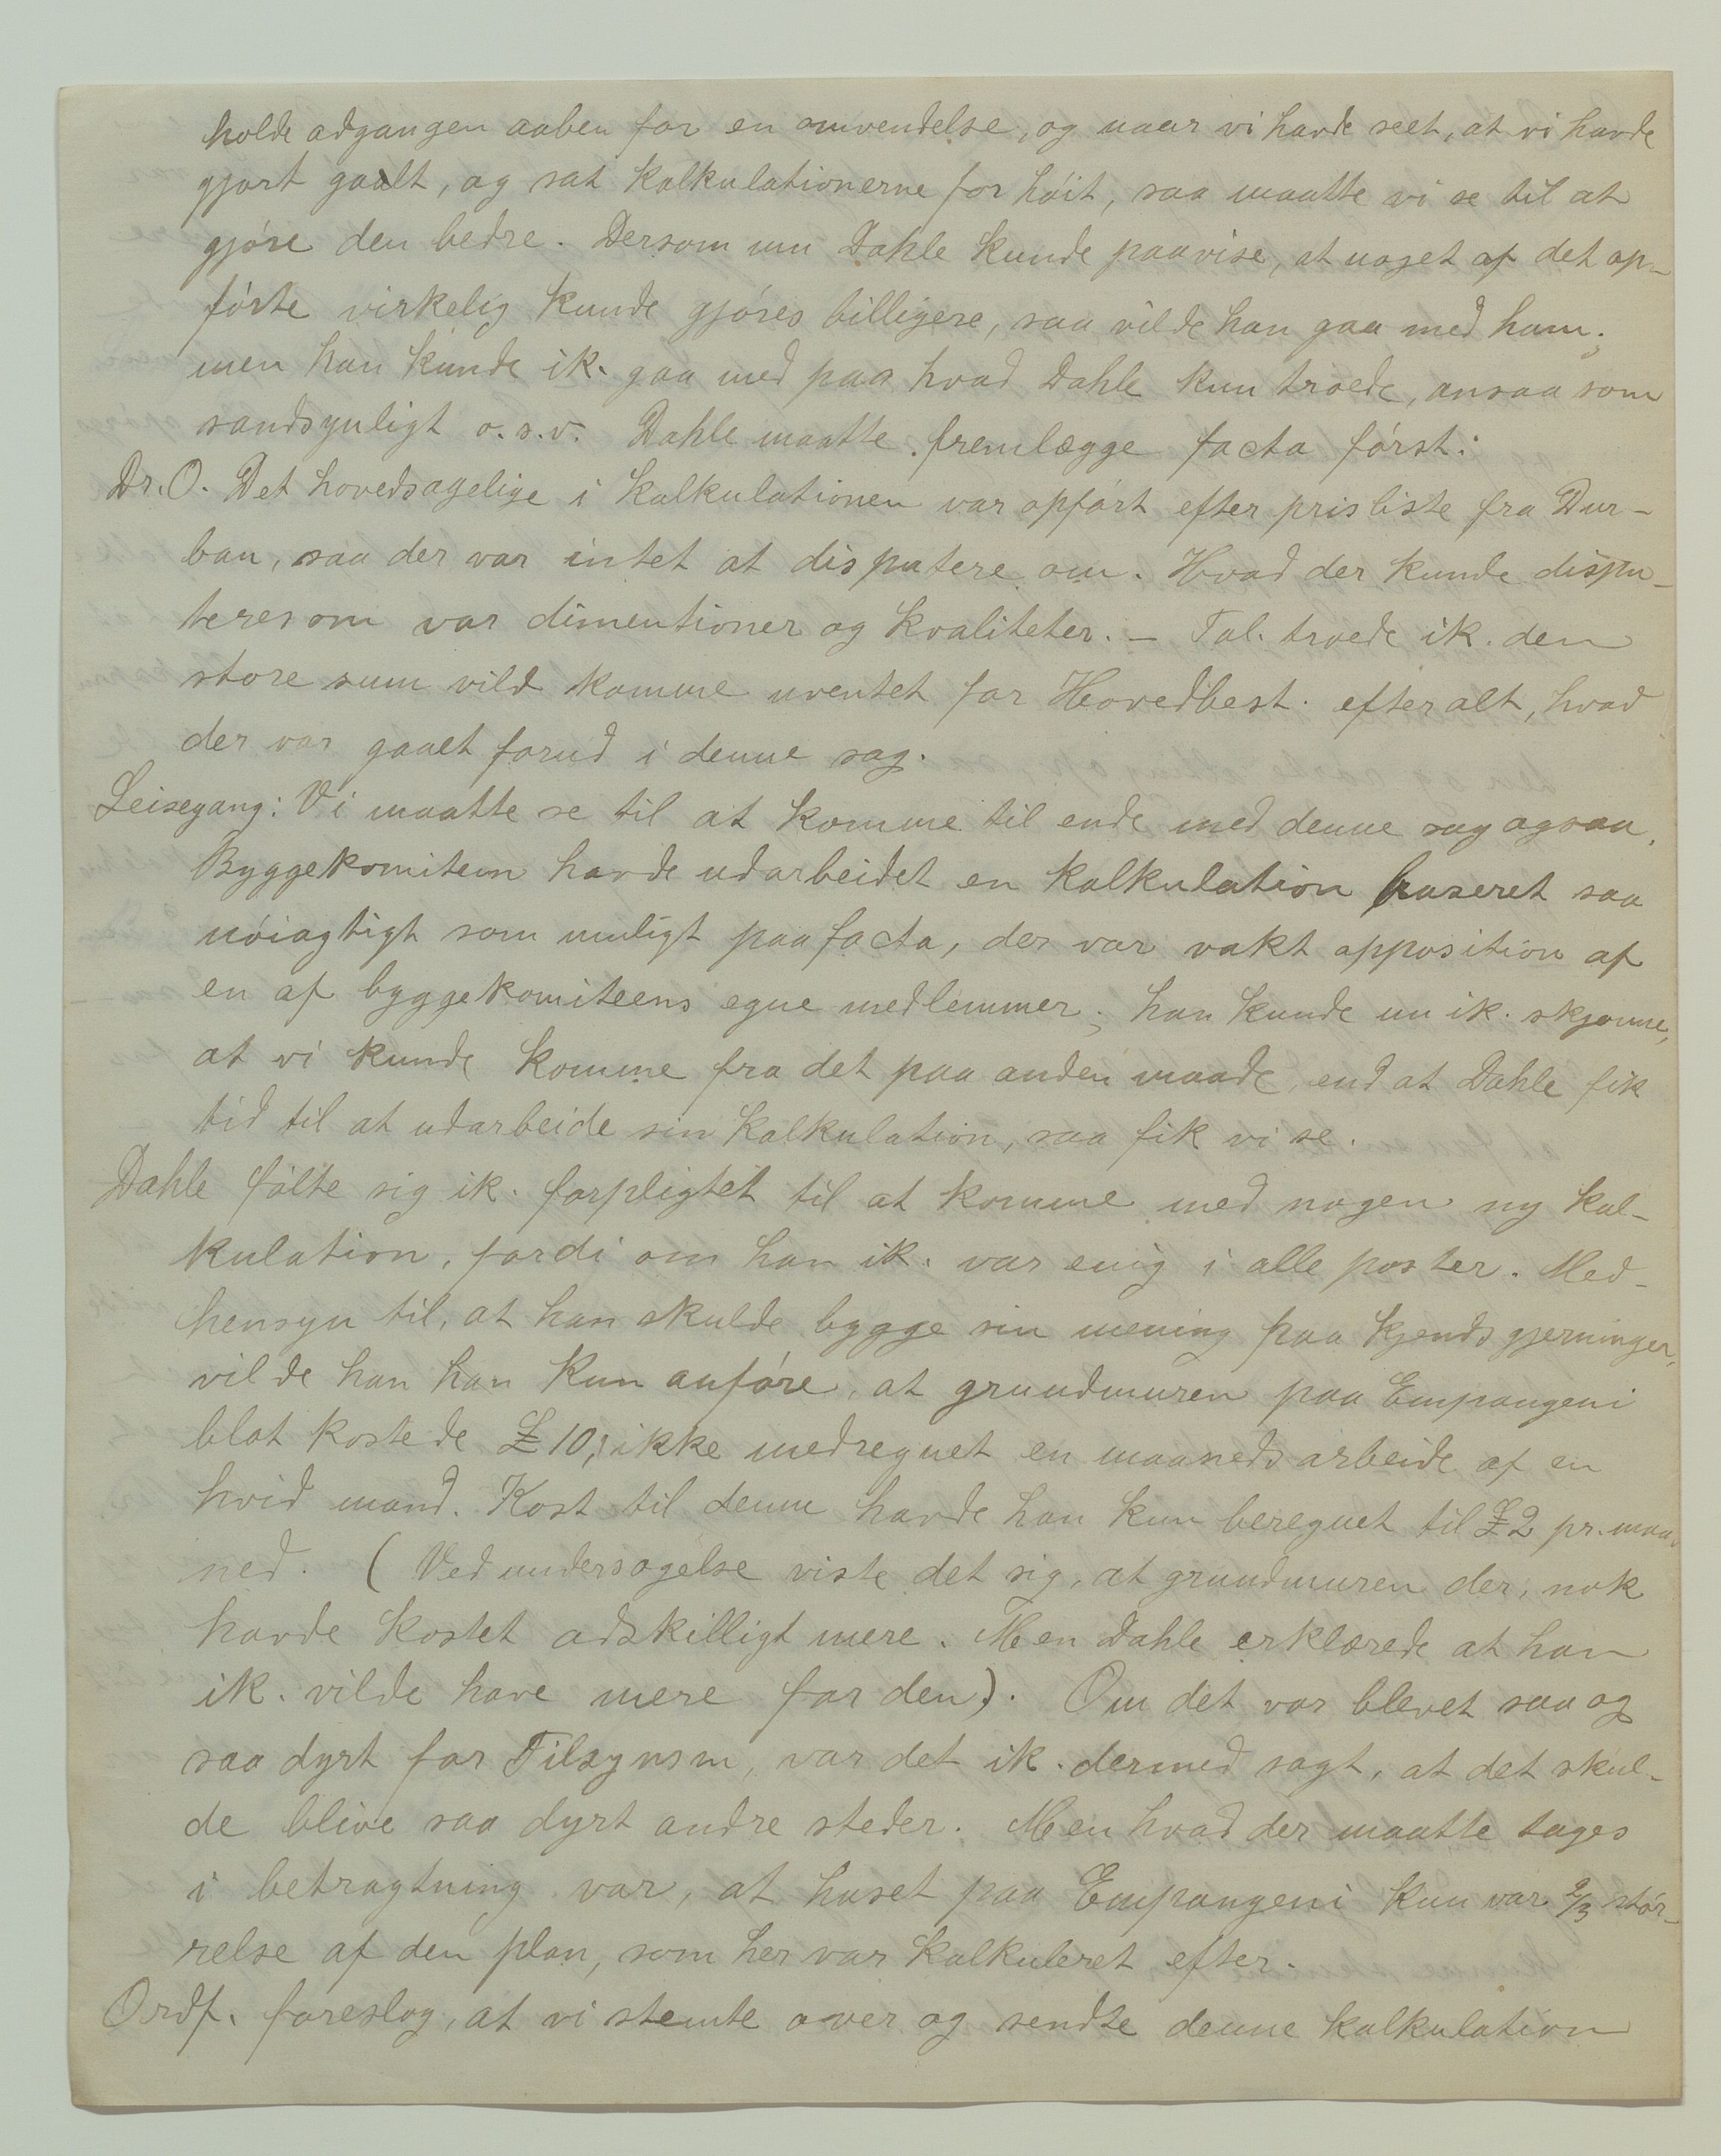 holde adgangen aaben for en omvendelse, og naar vi havde seet, at vi havde
gjort galt, og sat kalkulationerne for høit, saa maatte vi se til at
gjøre den bedre. Dersom nu Dahle kunde paavise, at noget af det op-
førte virkelig kunde gjøres billigere, saa vilde han gaa med ham;
men han kunde ik. gaa med paa hvad Dahle kun troede, ansaa som
sandsynligt o.s.v. Dahle maatte fremlægge facta først.
Dr. O. Det hovedsagelige i kalkulationen var opført efter prisliste fra Dur-
ban, saa der var intet at disputere om. Hvad der kunde dispu-
teres om var dimentioner og kvaliteter. – Tal. troede ik. den
store sum vild komme uventet for Hovedbest. efter alt, hvad
der var gaaet forud i denne sag.
Leisegang: Vi maatte se til at komme til ende med denne sag ogsaa.
Byggekomiteen havde udarbeidet en kalkulation baseret saa
nøiagtigt som muligt paa facta, der var vakt opposition af
en af byggekomiteens egne medlemmer; han kunde nu ik. skjønne,
at vi kunde komme fra det paa anden maade, end at Dahle fik
tid til at udarbeide sin kalkulation, saa fik vi se.
Dahle følte sig ik. forpligtet til at komme med nogen ny kal-
kulation, fordi om han ik. var enig i alle poster. Med-
hensyn til, at han skulde bygge sin mening paa kjendsgjerninger,
vilde han han kun anføre, at grundmuren paa Empangeni
blot kostede £10; ikke medregnet en maaneds arbeide af en
hvid mand. Kost til denne havde han kun beregnet til £2 pr. maa-
ned. (Ved undersøgelse viste det sig, at grundmuren der, nok
havde kostet adskilligt mere. Men Dahle erklærede at han
ik. vilde have mere for den). Om det var blevet saa og
saa dyrt for Tilsynsm, var det ik. dermed sagt, at det skul-
de blive saa dyrt andre steder. Men hvad der maatte tages
i betragtning var, at huset paa Empangeni kun var 2/3 stør-
relse af den plan, som her var kalkuleret efter.
Ordf. foreslog, at vi stemte over og sendte denne kalkulation